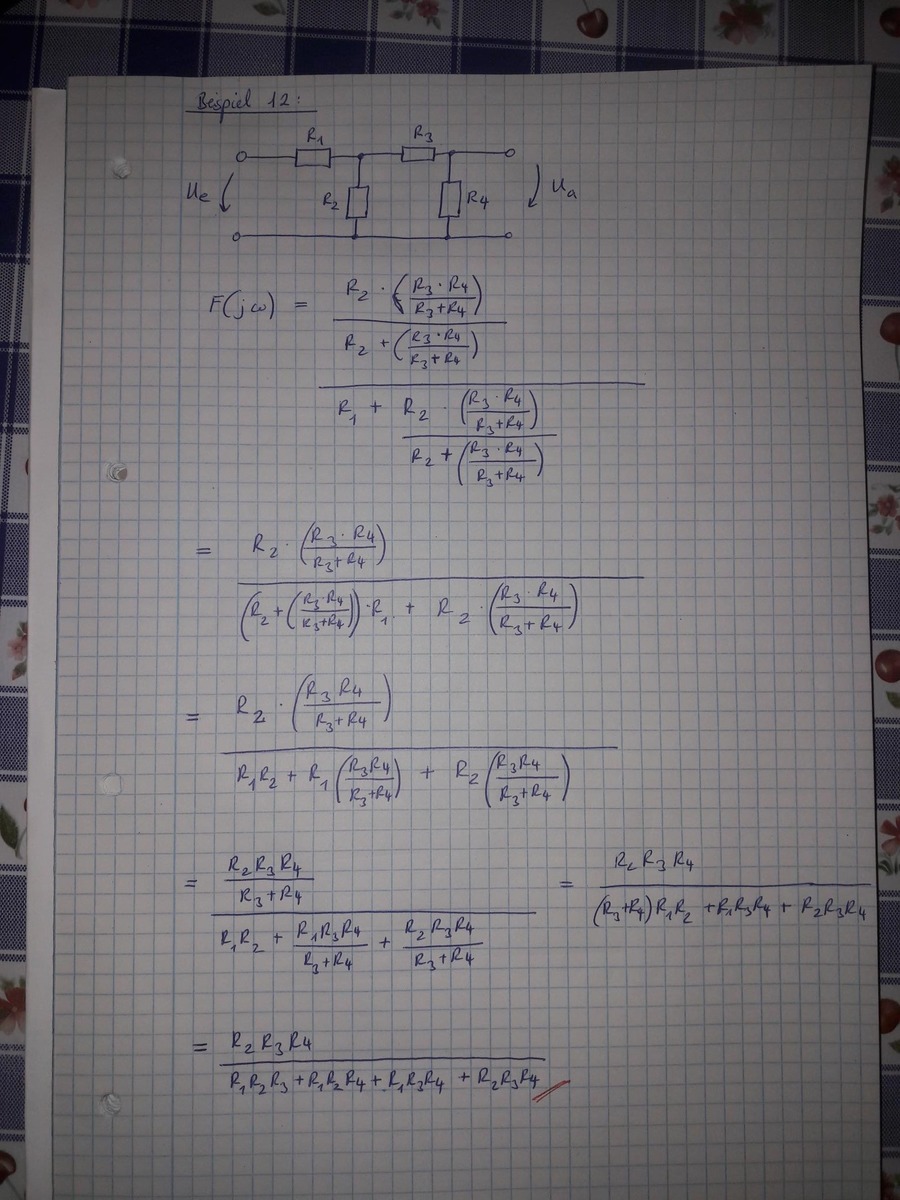 Beispiel 12:
R1 R3
Ue R2 R4 Ua
F(jω) = (R2 · ((R3 · R4)/(R3+R4))) / (R2 + ((R3 · R4)/(R3+R4)))
/ (R1 + (R2 · ((R3 · R4)/(R3+R4))) / (R2 + ((R3 · R4)/(R3+R4))))
= R2 · ((R3 · R4)/(R3+R4))
/ ((R2 + ((R3·R4)/(R3+R4))) · R1 + R2 · ((R3 · R4)/(R3+R4)))
= R2 · ((R3 R4)/(R3+R4))
/ (R1R2 + R1 ((R3R4)/(R3+R4)) + R2 ((R3R4)/(R3+R4)))
= ((R2R3R4)/(R3+R4)) / (R1R2 + (R1R3R4)/(R3+R4) + (R2R3R4)/(R3+R4))
= R2 R3 R4 / ((R3+R4)R1R2 + R1R3R4 + R2R3R4)
= R2 R3 R4 / (R1R2R3 + R1R2R4 + R1R3R4 + R2R3R4)